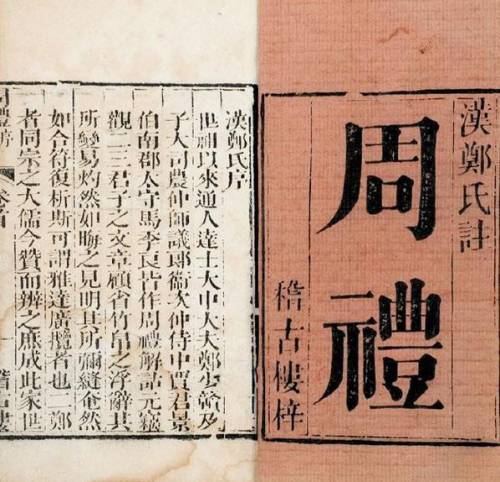 漢鄭氏註
周禮
稽古樓梓
漢鄭氏序
世祖以來通人達士大中大夫鄭少贛及
子大司農仲師議郎衞次仲侍中賈君景
伯南郡太守馬季長皆作周禮解詁元竊
觀二三君子之文章顧省竹帛之浮辭其
所變易灼然如晦之見明其所彌縫奄然
如合符復析斯可謂雅達廣攬者也二鄭
者同宗之大儒今贊而辨之庶成此家世
周禮序 卷首 一 稽古樓